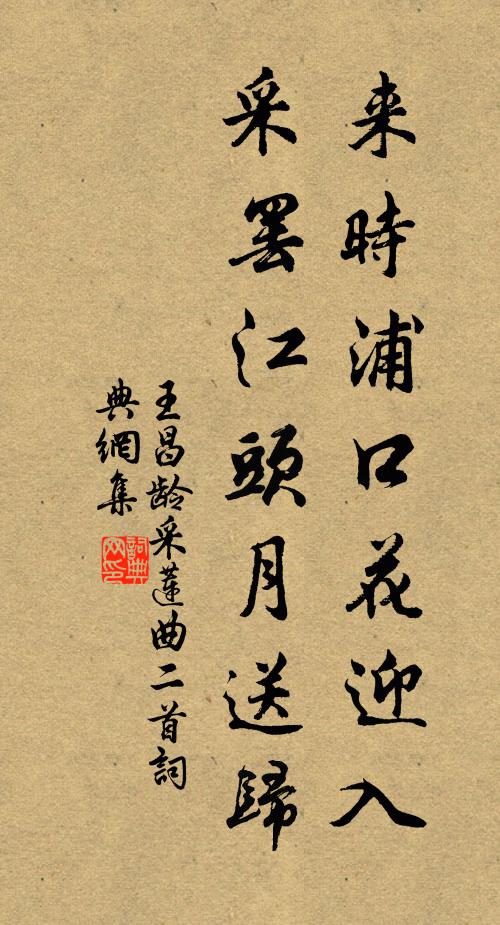 来時浦口花迎入
采罷江頭月送歸
王昌龄采蓮曲二首詞
典網集
詞典
网印